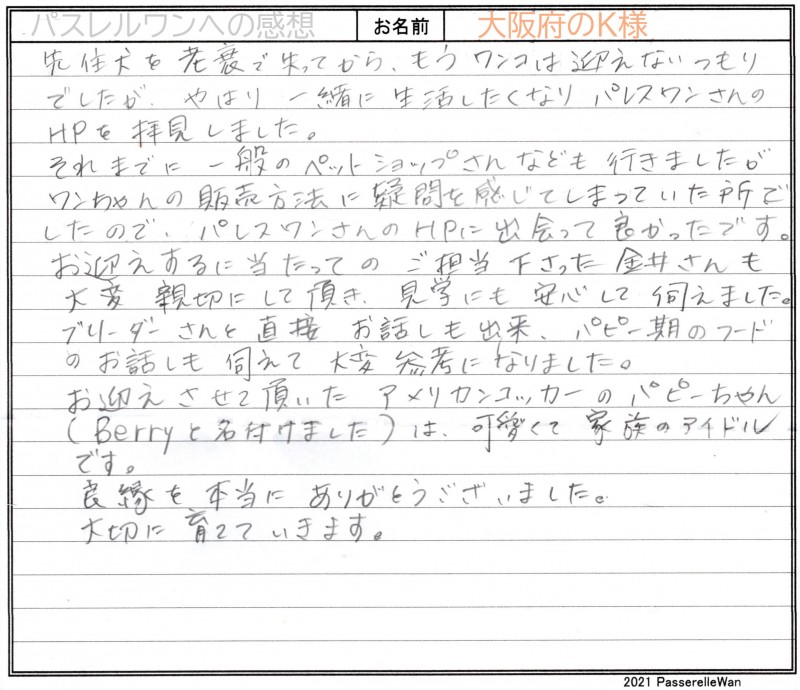 パスレルワンへの感想 お名前 大阪府のK様
先住犬を老衰で失ってから、もうワンコは迎えないつもり
でしたが、やはり一緒に生活したくなりパレスワンさんの
HPを拝見しました。
それまでに一般のペットショップさんなども行きましたが
ワンちゃんの販売方法に疑問を感じてしまっていた所で
したので、パレスワンさんのHPに出会って良かったです。
お迎えするに当たってのご担当下さった金井さんも
大変親切にして頂き、見学にも安心して伺えました。
ブリーダーさんと直接お話しも出来、パピー期のフード
のお話しも伺えて大変参考になりました。
お迎えさせて頂いたアメリカンコッカーのパピーちゃん
(Berryと名付けました)は、可愛くて家族のアイドル
です。
良縁を本当にありがとうございました。
大切に育てていきます。
2021 PasserelleWan